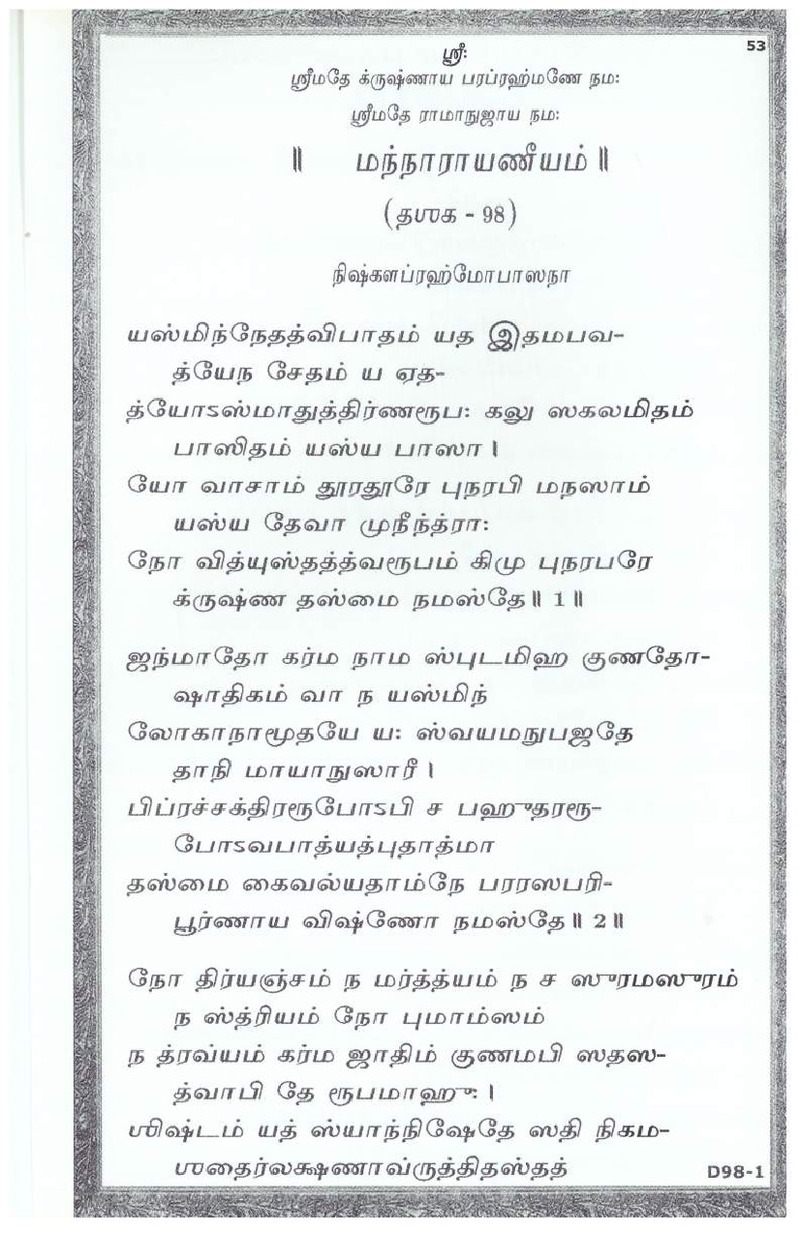 53
ஸ்ரீ:
ஸ்ரீமதே க்ருஷ்ணாய பரப்ரஹ்மணே நம:
ஸ்ரீமதே ராமாநுஜாய நம:
॥ மந்நாராயணீயம் ॥
(தஶக - 98)
நிஷ்களப்ரஹ்மோபாஸநா
யஸ்மிந்நேதத்விபாதம் யத இதமபவ-
த்யேந சேதம் ய ஏத-
த்யோऽஸ்மாதுத்திர்ணரூப: கலு ஸகலமிதம்
பாஸிதம் யஸ்ய பாஸா ।
யோ வாசாம் தூரதூரே புநரபி மநஸாம்
யஸ்ய தேவா முநீந்த்ரா:
நோ வித்யுஸ்தத்த்வரூபம் கிமு புநரபரே
க்ருஷ்ண தஸ்மை நமஸ்தே ॥ 1 ॥
ஜந்மாதோ கர்ம நாம ஸ்புடமிஹ குணதோ-
ஷாதிகம் வா ந யஸ்மிந்
லோகாநாமூதயே ய: ஸ்வயமநுபஜதே
தாநி மாயாநுஸாரீ ।
பிப்ரச்சக்திரரூபோऽபி ச பஹுதரரூ-
போऽவபாத்யத்புதாத்மா
தஸ்மை கைவல்யதாம்நே பரரஸபரி-
பூர்ணாய விஷ்ணோ நமஸ்தே ॥ 2 ॥
நோ திர்யஞ்சம் ந மர்த்த்யம் ந ச ஸுரமஸுரம்
ந ஸ்த்ரியம் நோ புமாம்ஸம்
ந த்ரவ்யம் கர்ம ஜாதிம் குணமபி ஸதஸ-
த்வாபி தே ரூபமாஹு: ।
ஶிஷ்டம் யத் ஸ்யாந்நிஷேதே ஸதி நிகம-
ஶதைர்லக்ஷணாவ்ருத்திதஸ்தத்
D98-1